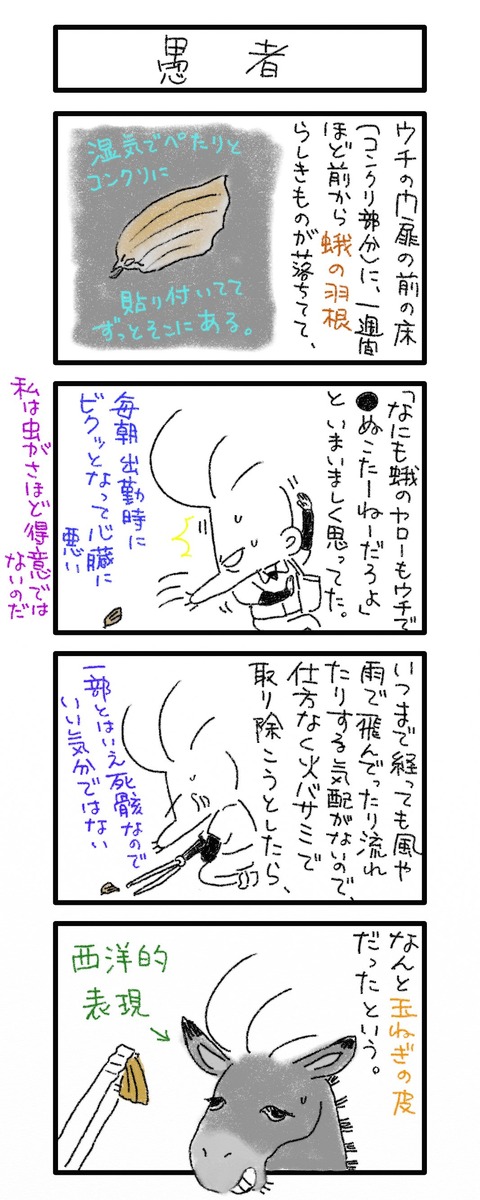 愚者
ウチの門扉の前の床
（コンクリ部分）に、一週間
ほど前から蛾の羽根
らしきものが落ちてて、
湿気でペたりと
コンクリに
貼り付いてて
ずっとそこにある。
「なにも蛾のヤローもウチで
●ぬこたーねーだろよ」
といまいましく思ってた。
毎朝出勤時に
ビクッとなって心臓に
悪い
私は虫がさほど得意では
ないのだ
いつまで経っても風や
雨で飛んでったり流れ
たりする気配がないので、
仕方なく火バサミで
取り除こうとしたら、
一部とはいえ死骸なので
いい気分ではない
なんと玉ねぎの皮
だったという。
西洋的
表現